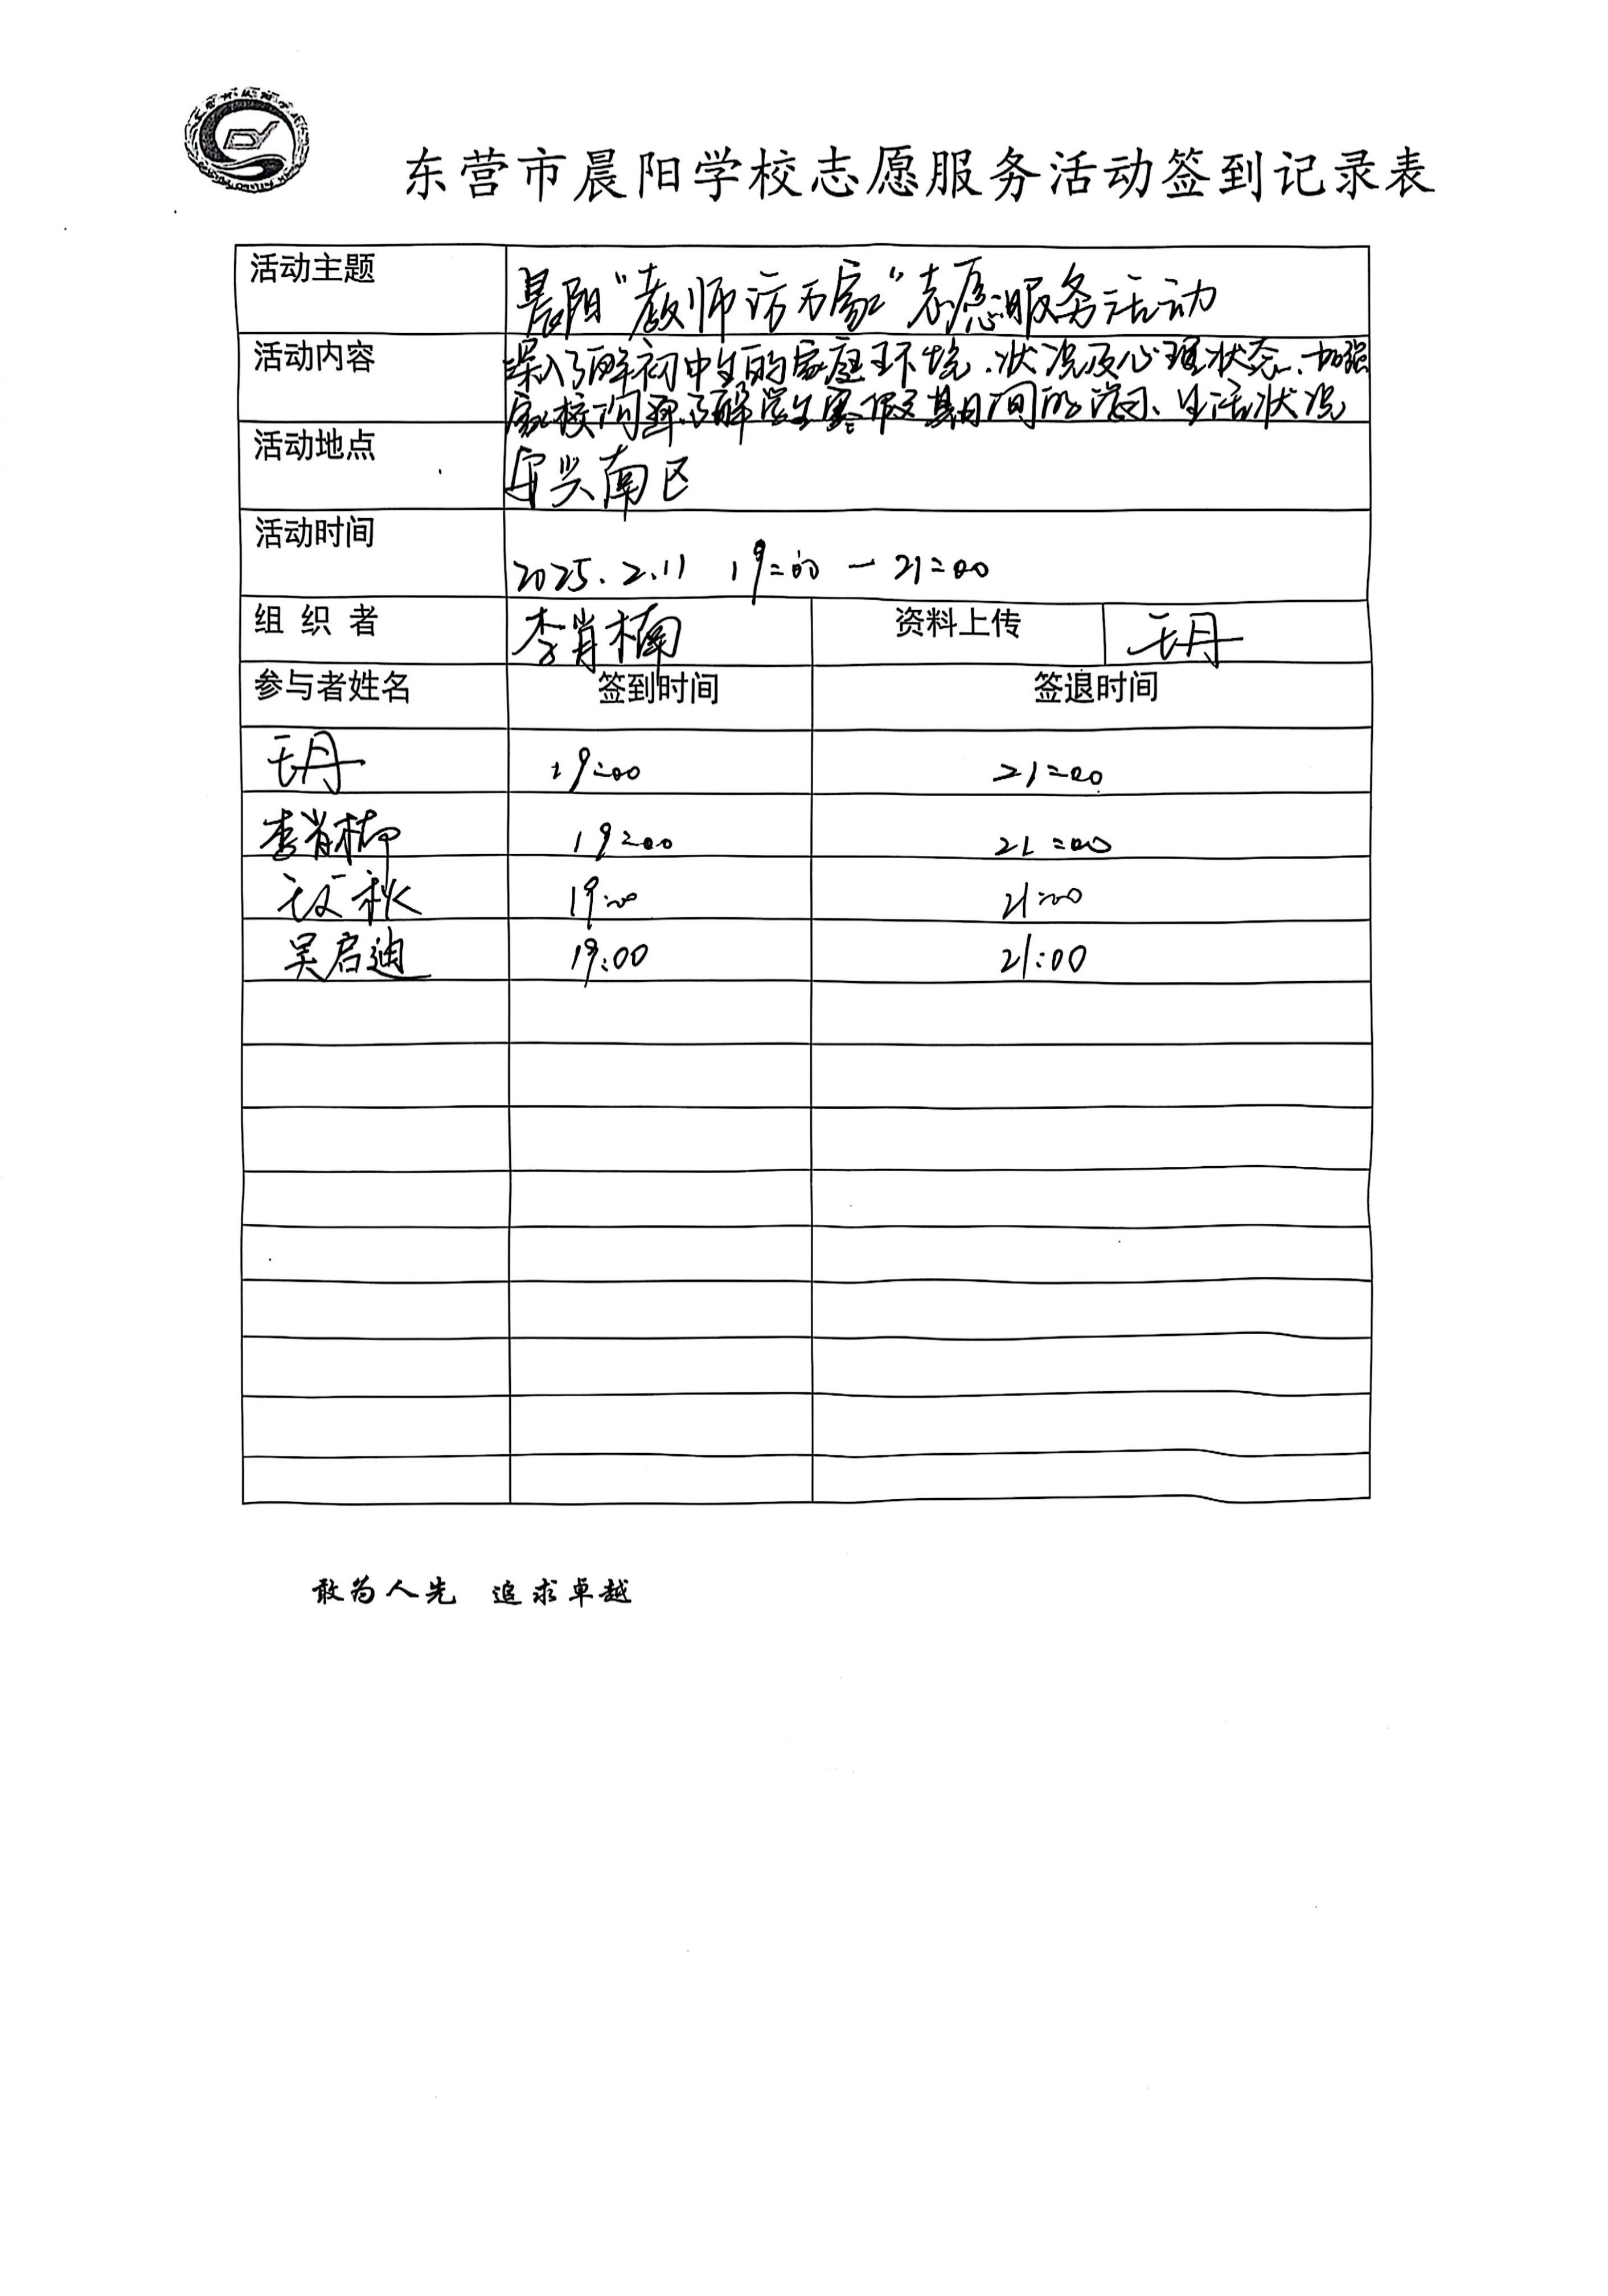 东营市晨阳学校志愿服务活动签到记录表
活动主题 晨阳“教师访万家”志愿服务活动
活动内容 深入了解初中生的家庭环境、状况及心理状态、加强
家校沟通,了解学生寒假期间的学习、生活状况
活动地点 安兴南区
活动时间 2025.2.11 19:00 — 21:00
组织者 李肖楠 资料上传 王丹
参与者姓名 签到时间 签退时间
王丹 19:00 21:00
李肖楠 19:00 21:00
秋 19:00 21:00
吴启迪 19:00 21:00
敢为人先 追求卓越